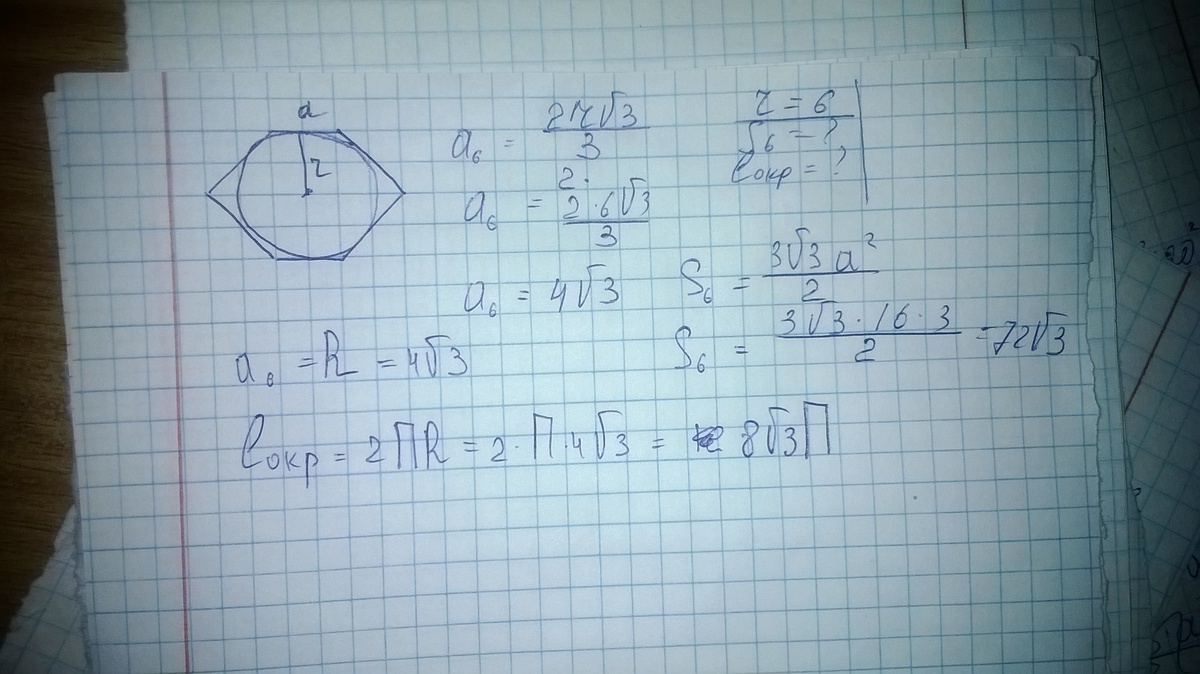 a
r
a₆ = 2r√3 / 3
2·
a₆ = 2·6√3 / 3
a₆ = 4√3
r = 6
S₆ = ?
lокр = ?
S₆ = 3√3 a² / 2
S₆ = 3√3·16·3 / 2 = 72√3
a₆ = R = 4√3
lокр = 2ПR = 2·П·4√3 = 8√3П